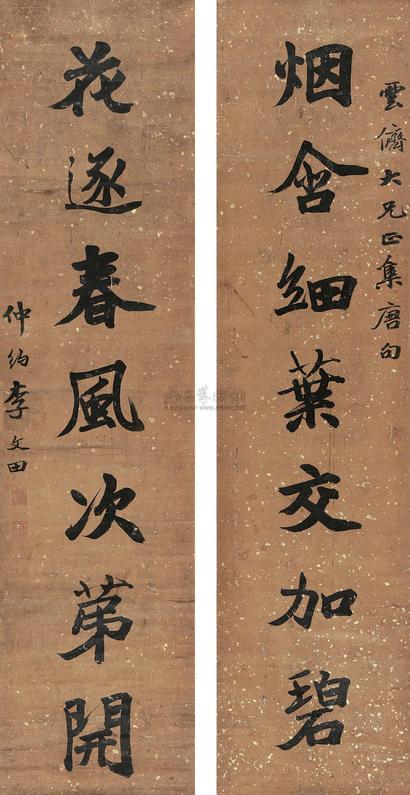 雲儕大兄正集唐句
烟含細葉交加碧
花逐春風次苐開
仲約李文田